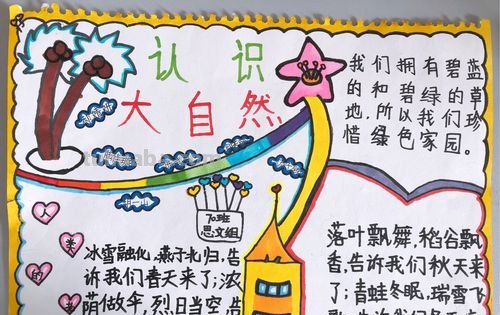 认识
大自然
我们拥有碧蓝
的和碧绿的草
地,所以我们珍
惜绿色家园。
人
类
的
冰雪融化,燕子北归,告
诉我们春天来了;浓
荫做伞,烈日当空,告
落叶飘舞,稻谷飘
香,告诉我们秋天来
了;青蛙冬眠,瑞雪飞